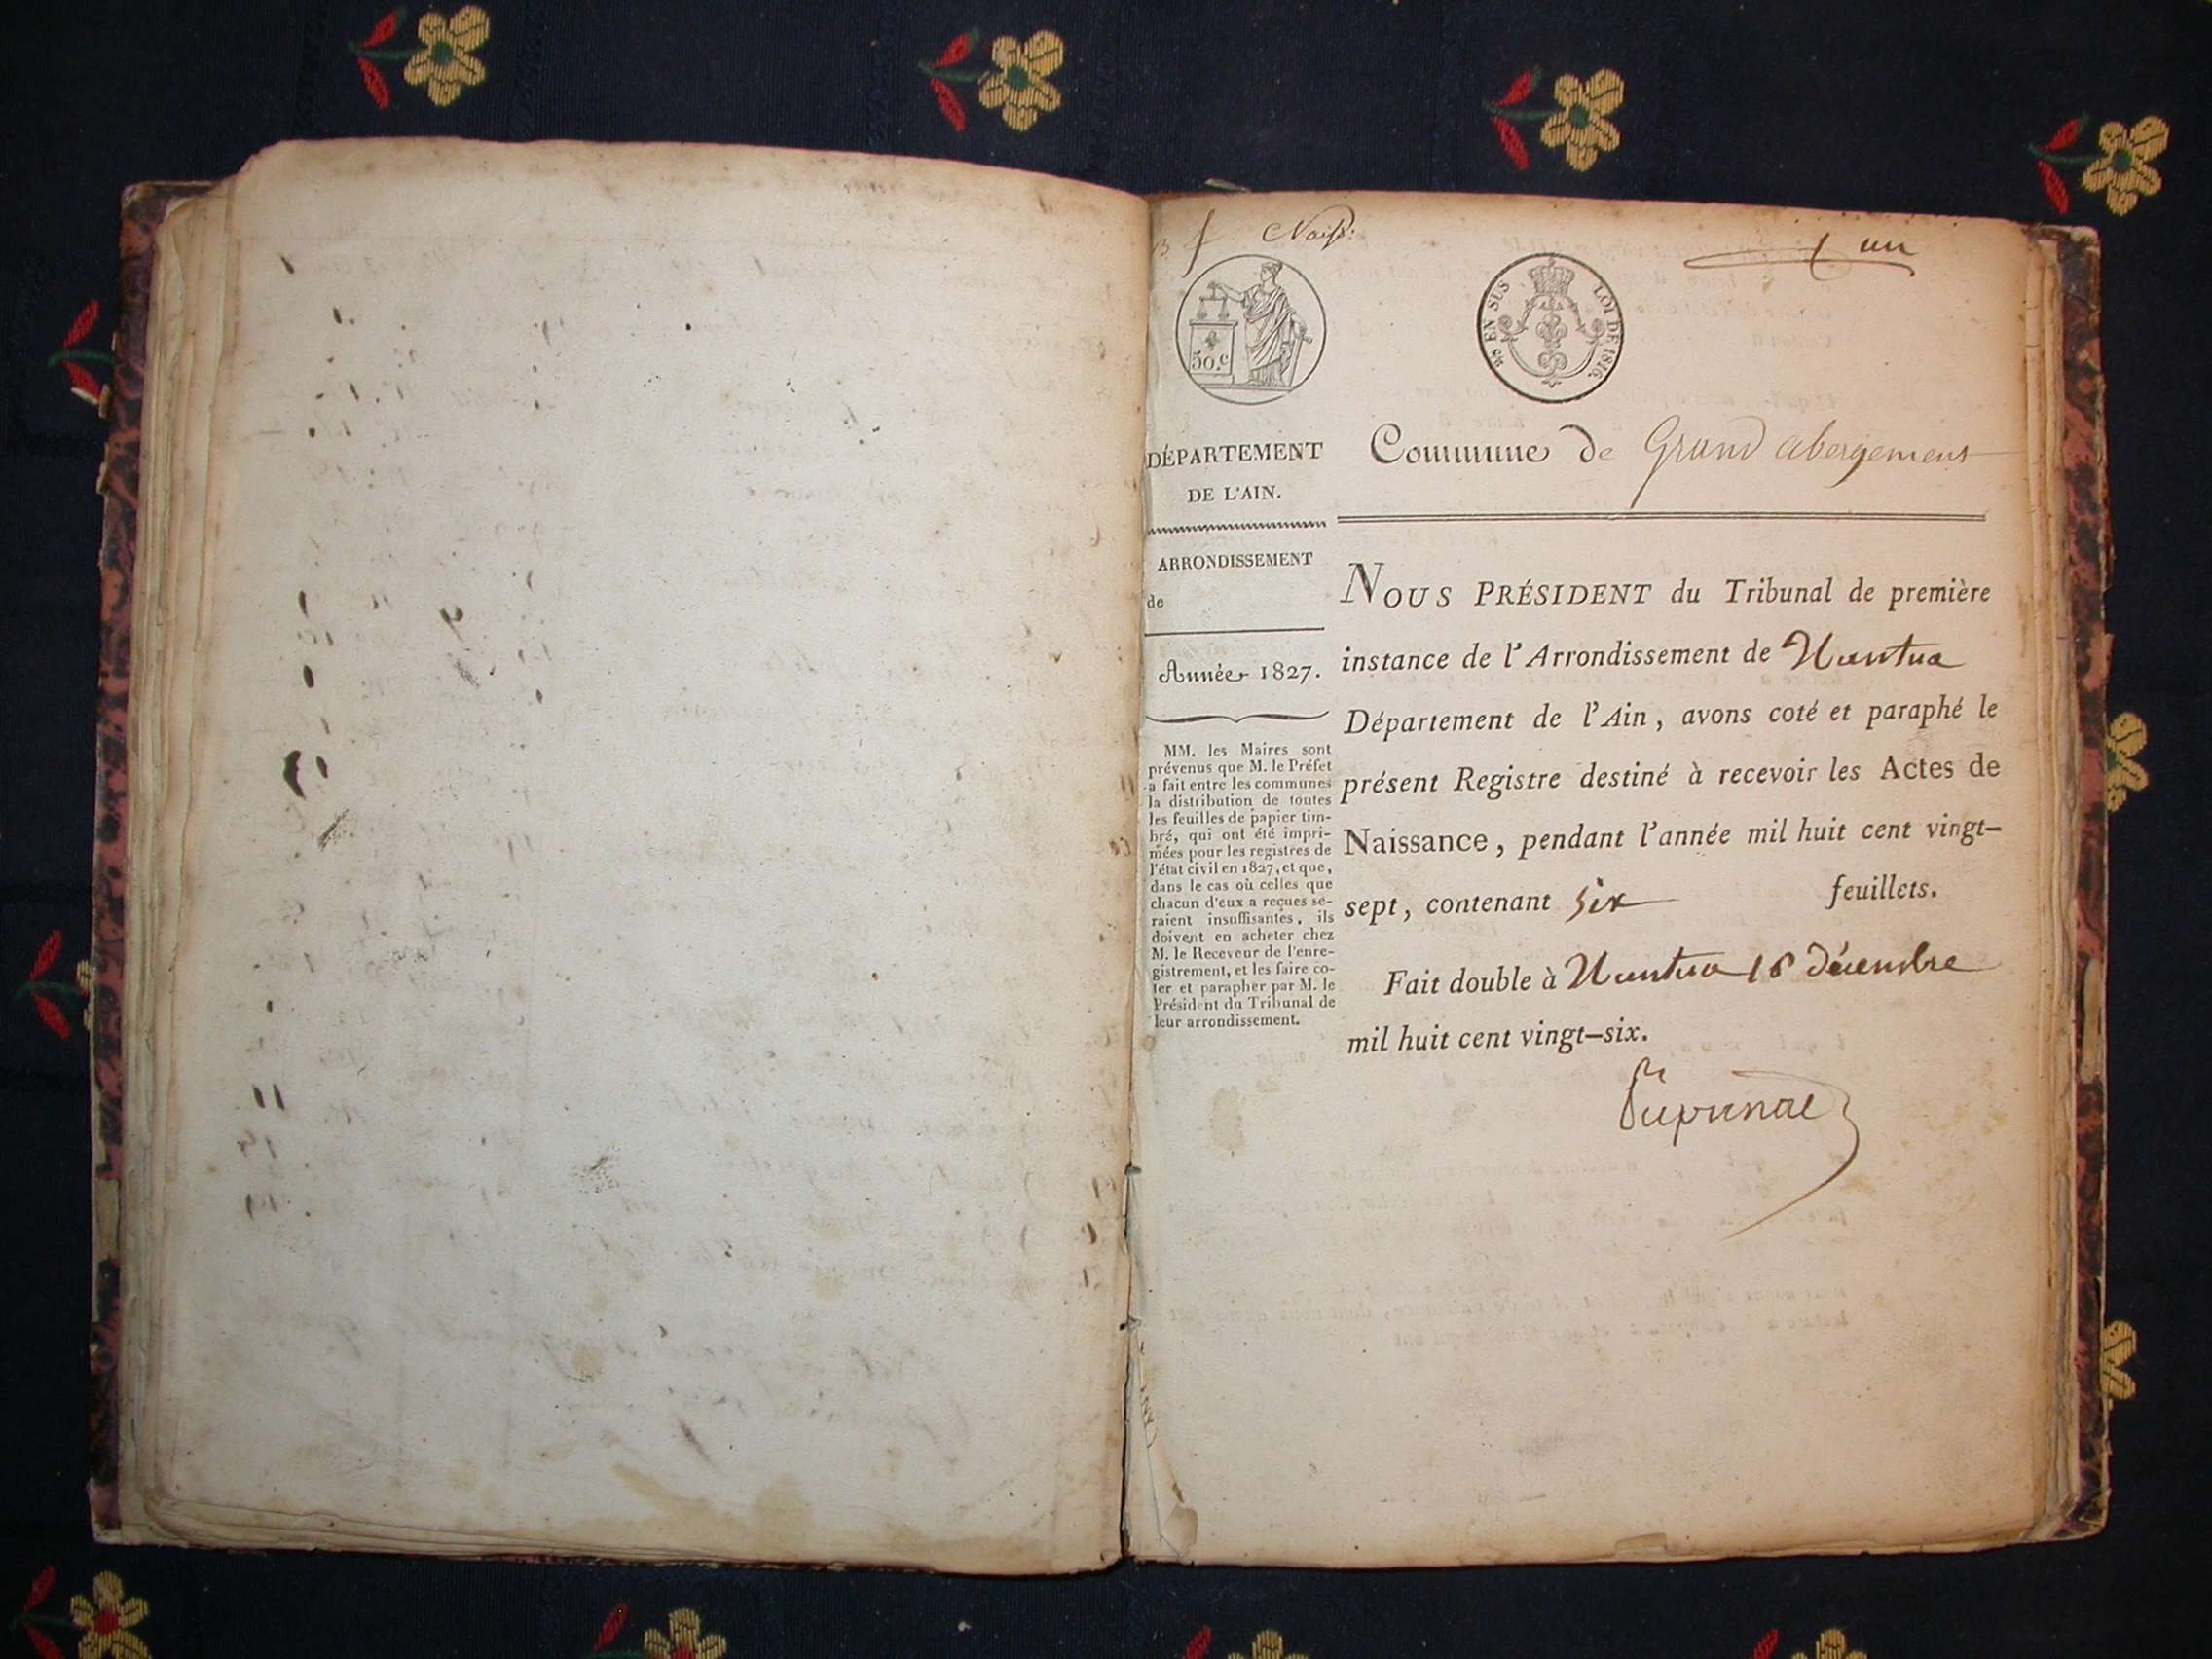 Naiss:
un
50.c
EN SUS LOI DE 1816.
DÉPARTEMENT
DE L'AIN.
ARRONDISSEMENT
de
Année 1827.
MM. les Maires sont
prévenus que M. le Préfet
a fait entre les communes
la distribution de toutes
les feuilles de papier tim-
bré, qui ont été impri-
mées pour les registres de
l'état civil en 1827, et que,
dans le cas où celles que
chacun d'eux a reçues se-
raient insuffisantes, ils
doivent en acheter chez
M. le Receveur de l'enre-
gistrement, et les faire co-
ter et parapher par M. le
Président du Tribunal de
leur arrondissement.
Commune de Grand abergement
NOUS PRÉSIDENT du Tribunal de première
instance de l'Arrondissement de Nantua
Département de l'Ain, avons coté et paraphé le
présent Registre destiné à recevoir les Actes de
Naissance, pendant l'année mil huit cent vingt-
sept, contenant six feuillets.
Fait double à Nantua 16 décembre
mil huit cent vingt-six.